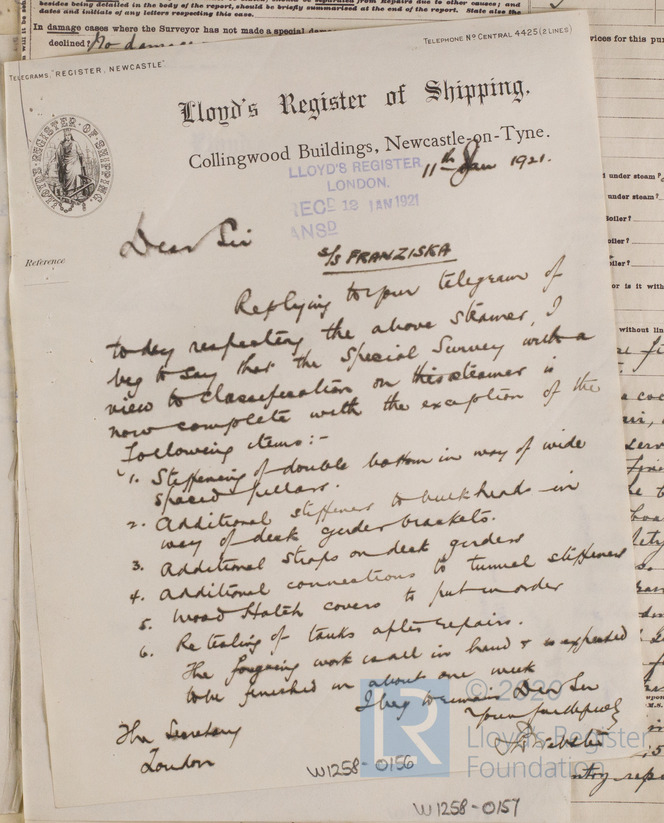 besides being detailed in the body of the report, should be briefly summarised at the end of the report. State also the
dates and initials of any letters respecting this case.
In damage cases where the Surveyor has not made a special
declined? No damage
vices for this
TELEGRAMS, "REGISTER, NEWCASTLE"
TELEPHONE Nº CENTRAL 4425 (2 LINES)
Lloyd's Register of Shipping,
Collingwood Buildings, Newcastle-on-Tyne.
LLOYD'S REGISTER OF SHIPPING
LLOYD'S REGISTER
LONDON.
RECD 13 JAN 1921
ANSD
11th Jan 1921.
Reference
Dear Sir
s/s FRANZISKA
Replying to your telegram of
today respecting the above steamer, I
beg to say that the Special Survey with a
view to classification on this steamer is
now complete with the exception of the
following items:-
1. Stiffening of double bottom in way of wide
spaced pillars.
2. Additional stiffeners to bulkheads in
way of deck girder brackets.
3. Additional straps on deck girders
4. Additional connections to tunnel stiffeners
5. Wood Hatch covers to put in order
6. Retesting of tanks after repairs.
The foregoing work is all in hand & is expected
to be finished in about one week
I beg to remain Dear Sir
Yours faithfully
The Secretary
London
W1258-0156
W1258-0157
under steam?
under steam?
oiler?
oiler?
oiler?
or is it with
without
LR
© 2020
Lloyd's Register
Foundation